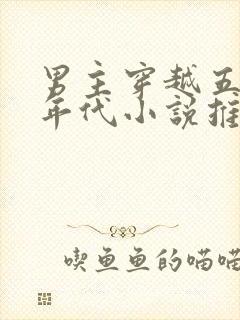 男主穿越五
年代小说推
喫鱼鱼的喵喵